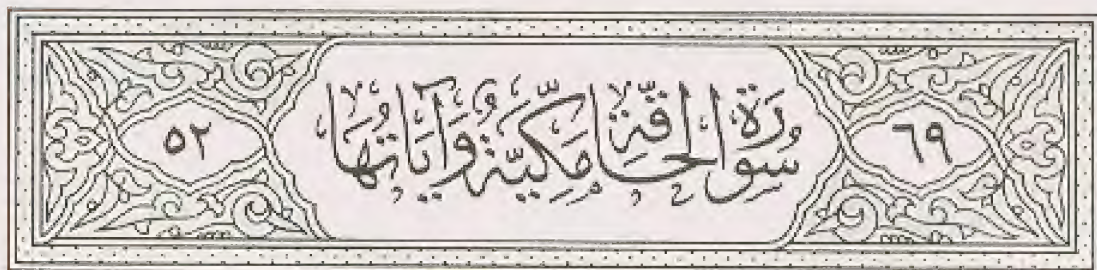 ٦٩ سُورَةُ الْحَاقَّةِ مَكِّيَّةٌ وَآيَاتُهَا ٥٢